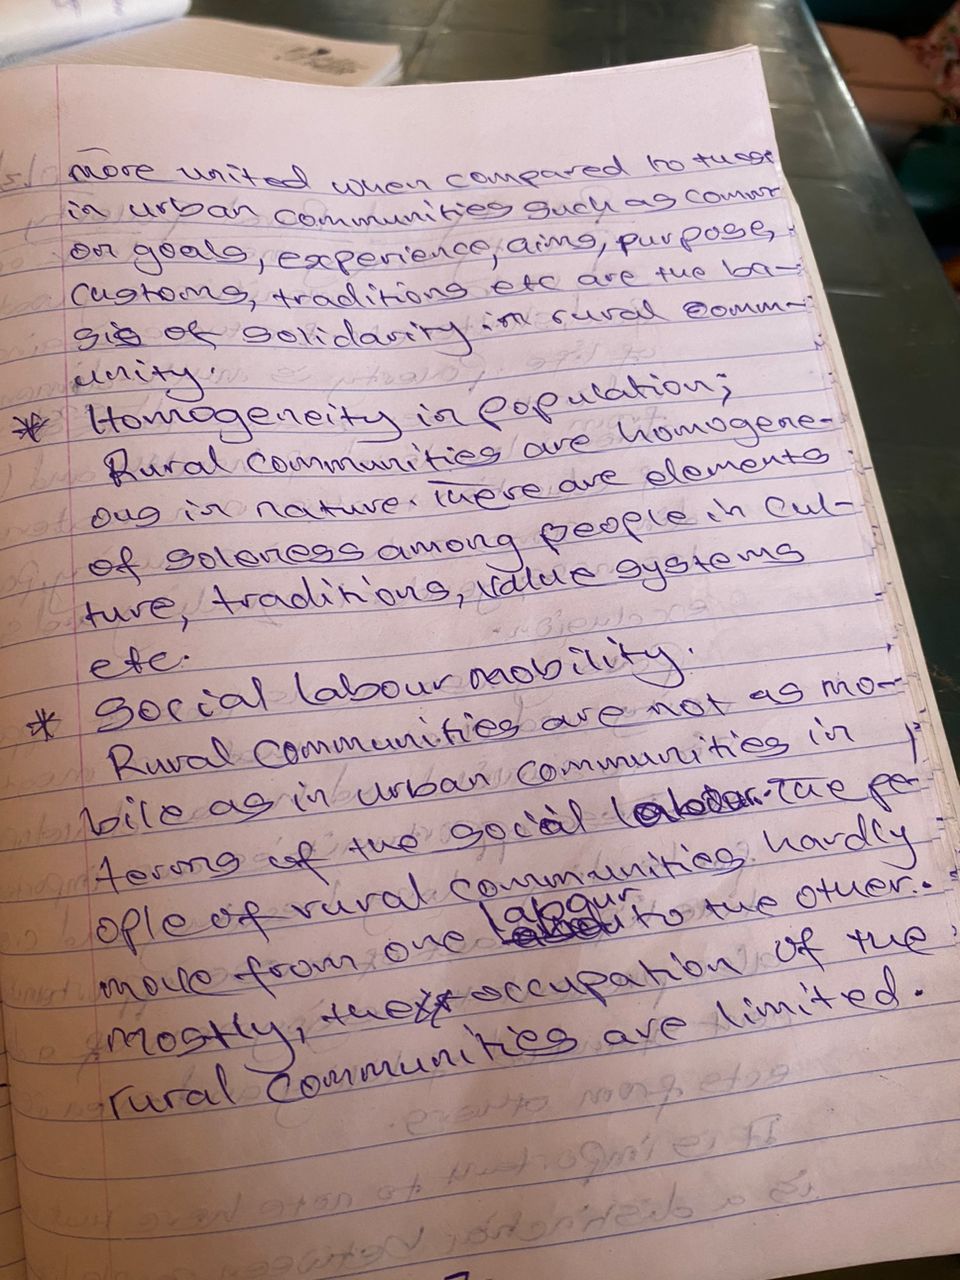 more united when compared to those
in urban communities such as comm-
on goals, experience, aims, purpose,
customs, traditions etc are the ba-
sis of solidarity in rural comm-
unity.
* Homogeneity in population;
Rural communities are homogene-
ous in nature. There are elements
of soleness among people in cul-
ture, traditions, value systems
etc.
* Social labour mobility.
Rural communities are not as mo-
bile as in urban communities in
terms of the social labour. The pe-
ople of rural communities hardly
move from one labour to the other.
mostly, the occupation of the
rural communities are limited.